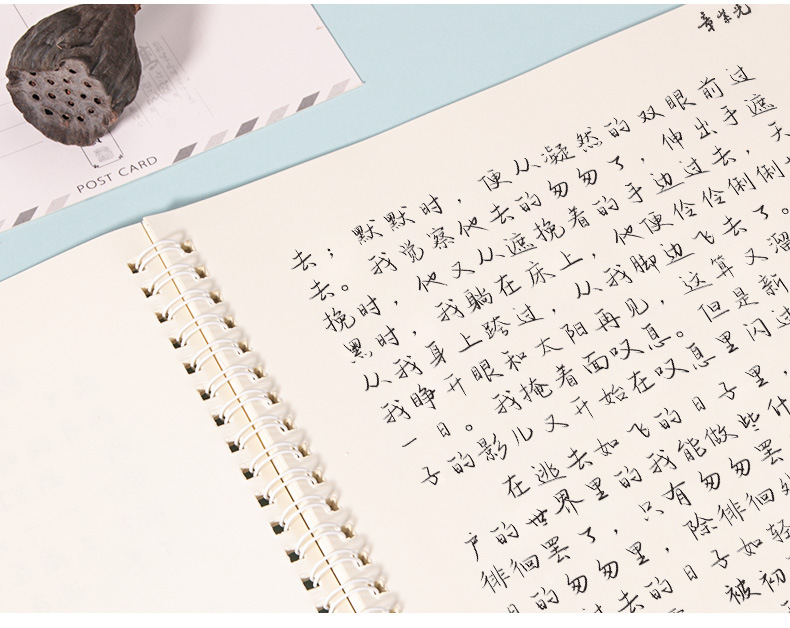 POST CARD
去；默默时，便从凝然的双眼前过
去。我觉察他去的匆匆了，伸出手遮
挽时，他又从遮挽着的手边过去，天
黑时，我躺在床上，他便伶伶俐俐
从我身上跨过，从我脚边飞去了。
我睁开眼和太阳再见，这算又溜
一日。我掩着面叹息。但是新
子的影儿又开始在叹息里闪过
在逃去如飞的日子里，
户的世界里的我能做些什
徘徊罢了，只有匆匆罢
的匆匆里，除徘徊外
过去的日子如轻
被初